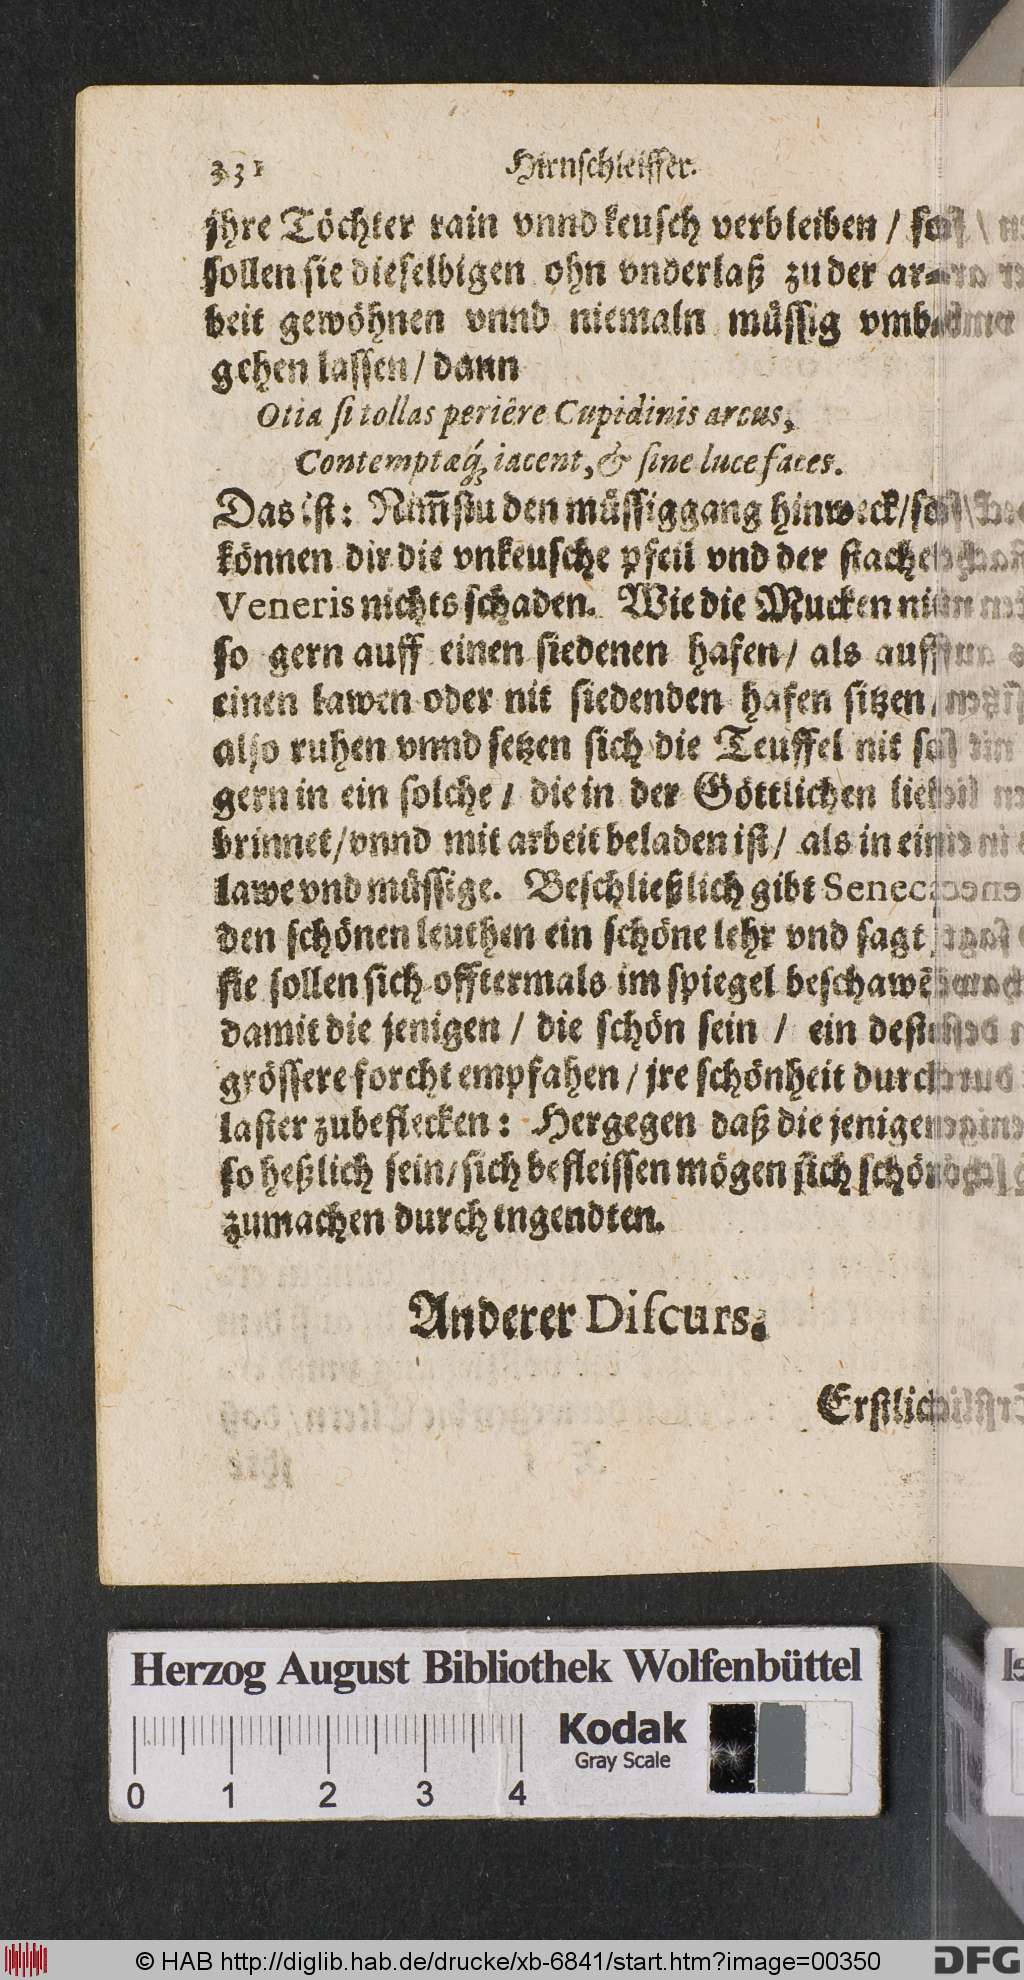 331 Hirnschleiffer.
jhre Töchter rain vnnd keusch verbleiben / so
sollen sie dieselbigen ohn vnderlaß zu der ar-
beit gewöhnen vnnd niemaln müssig vmb-
gehen lassen / dann
Otia si tollas periêre Cupidinis arcus,
Contemptæq́; iacent, & sine luce faces.
Das ist: Nim̃stu den müssiggang hinweck / so
können dir die vnkeusche pfeil vnd der stachel
Veneris nichts schaden. Wie die Mucken nit
so gern auff einen siedenen hafen / als auff
einen lawen oder nit siedenden hafen sitzen,
also ruhen vnnd setzen sich die Teuffel nit so
gern in ein solche / die in der Göttlichen lieb
brinnet / vnnd mit arbeit beladen ist / als in ein
lawe vnd müssige. Beschließlich gibt Seneca
den schönen leuthen ein schöne lehr vnd sagt
sie sollen sich offtermals im spiegel beschawẽ
damit die jenigen / die schön sein / ein desto
grössere forcht empfahen / jre schönheit durch
laster zubeflecken: Hergegen daß die jenigen
so heßlich sein / sich befleissen mögen sich schön
zumachen durch tngendten.
Anderer Discurs.
Erstlich
Herzog August Bibliothek Wolfenbüttel
Kodak
Gray Scale
0 1 2 3 4
© HAB http://diglib.hab.de/drucke/xb-6841/start.htm?image=00350
DFG